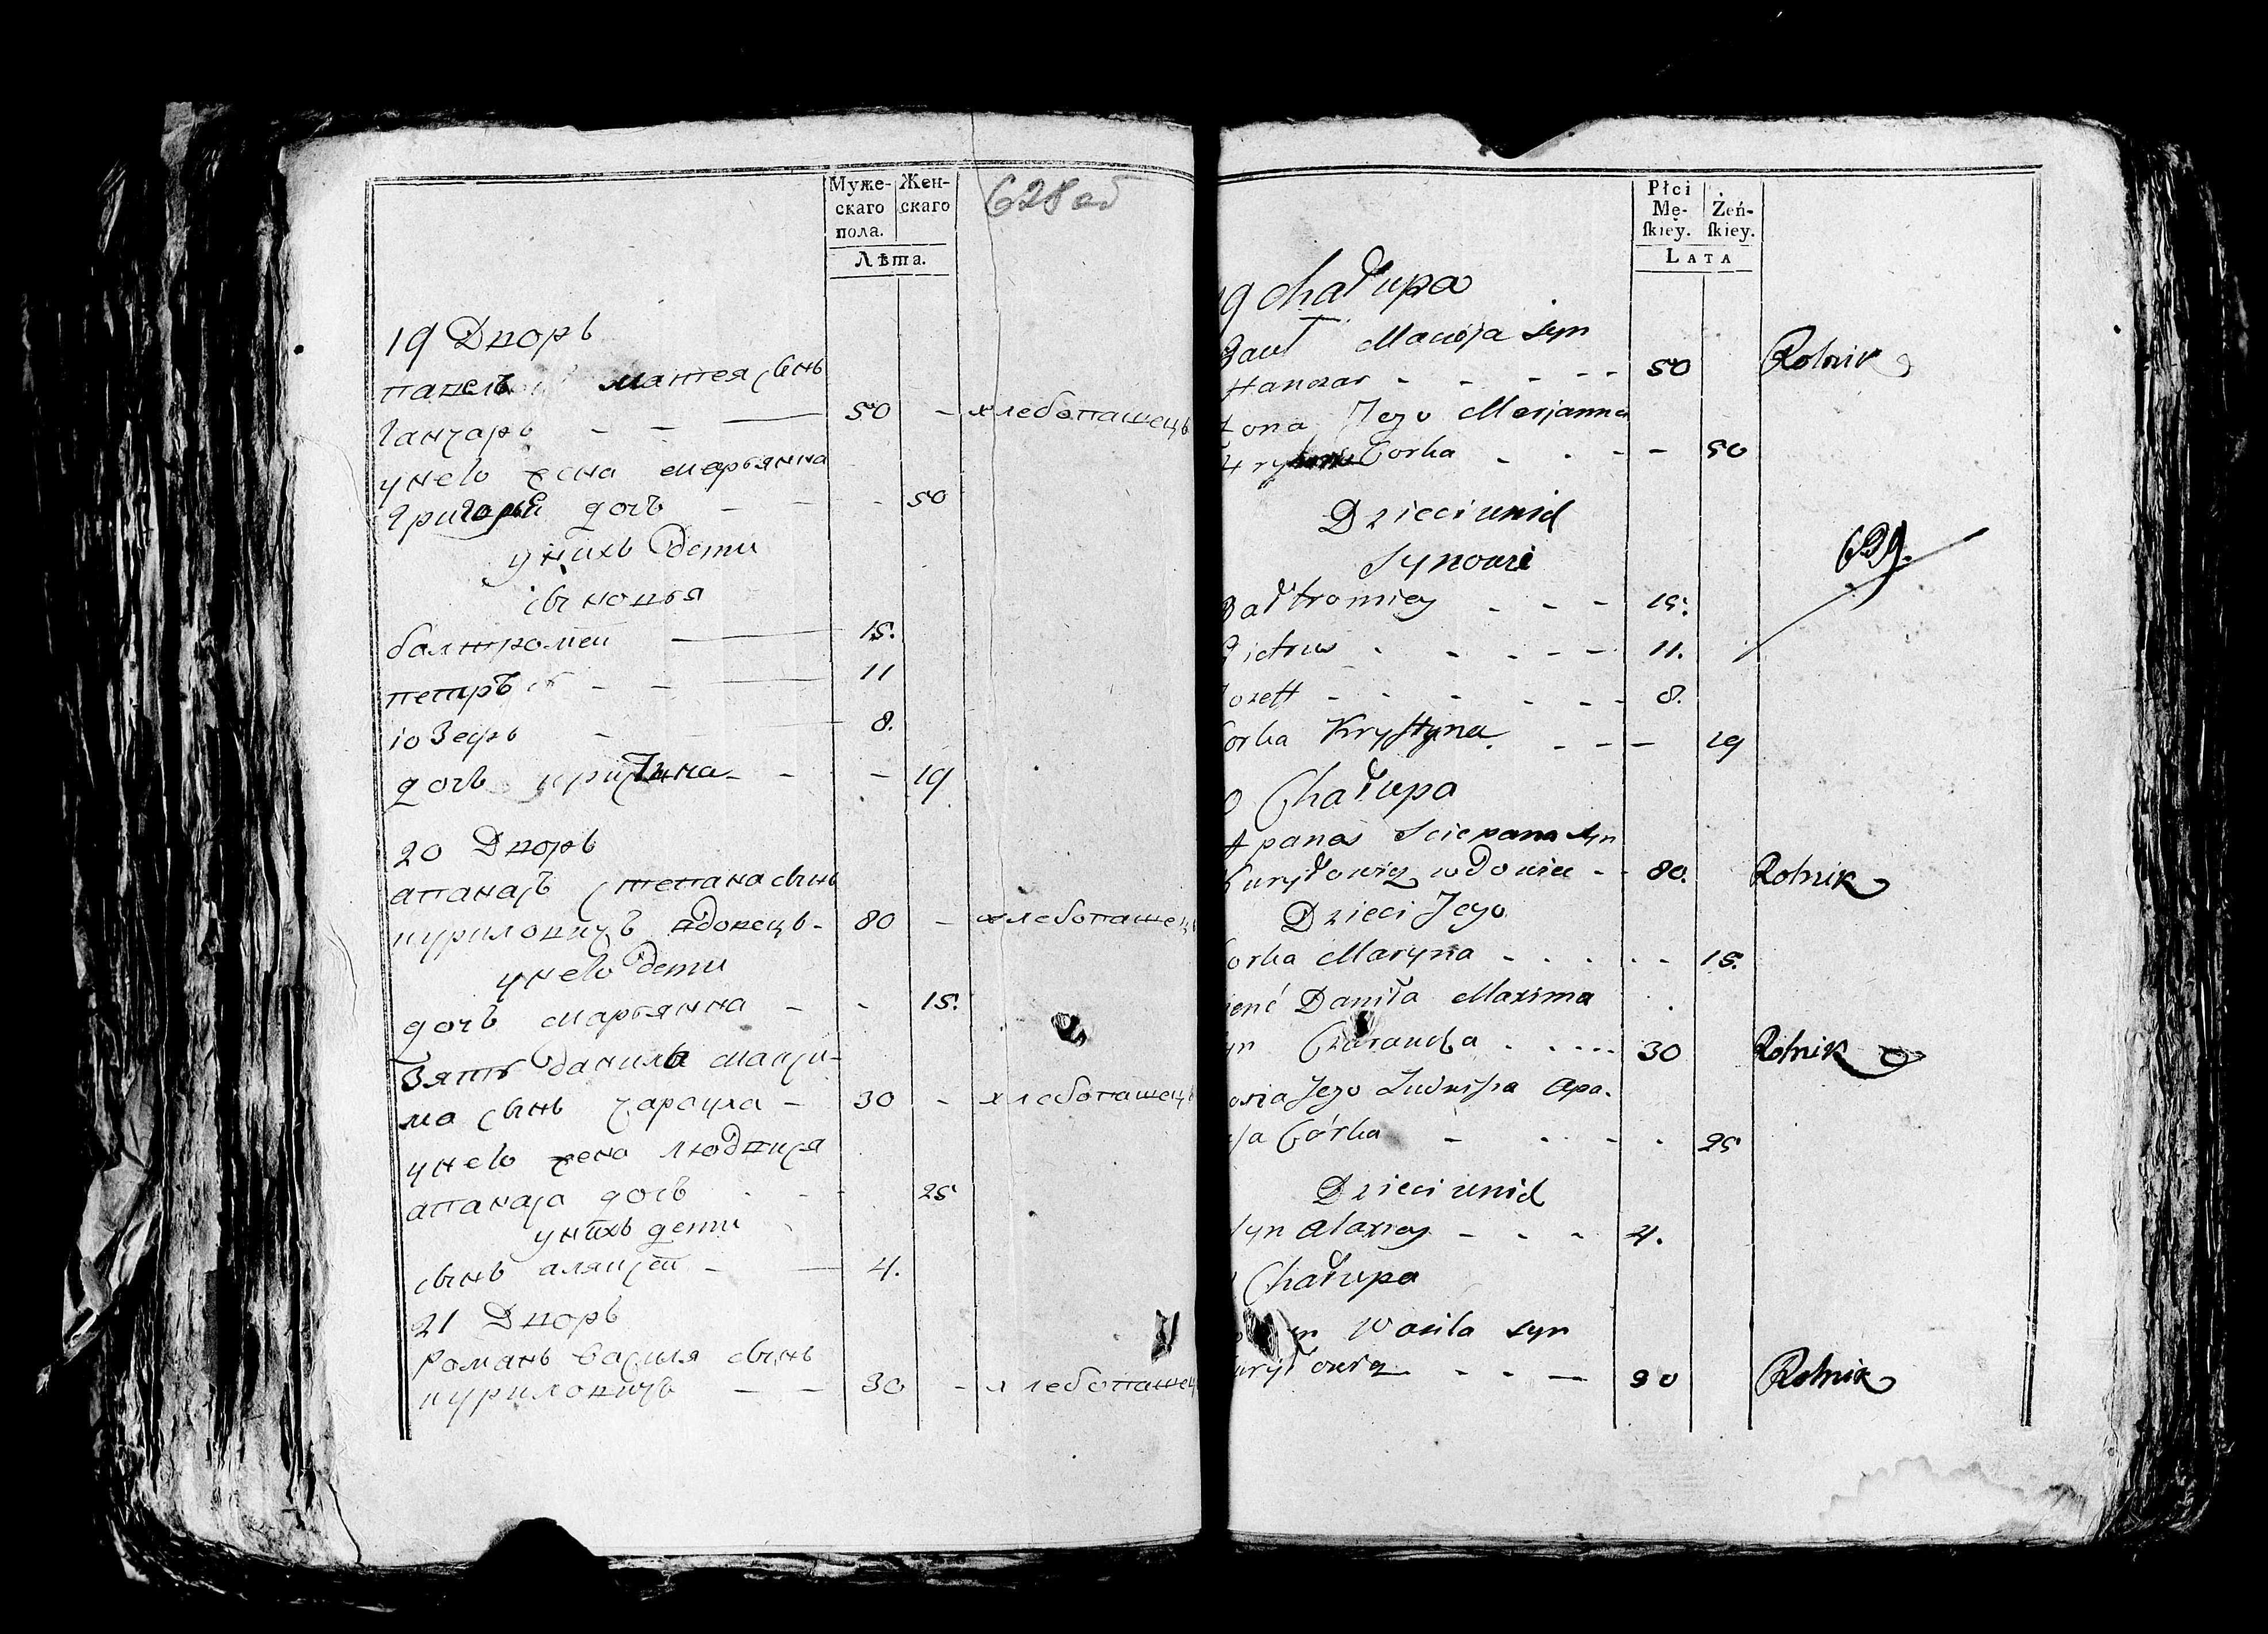 Муже- Жен-
скаго скаго
пола.
Лѣта.
628 об
19 Дворъ
павелъ матея сынъ
ганчаръ - - — 50 - хлебопашець
у него жена марьянна
григорья дочъ - - - 50
у нихъ дети
сыновья
балтромей — 15.
петръ - - — 11
іозефъ - — 8.
дочъ кристина - - - 19
20 Дворъ
апанасъ степана сынъ
куриловичъ вдовецъ - 80 - хлебопашец
у него дети
дочъ марьянна - - 15.
зять данила макси-
ма сынъ - 30 - хлебопашець
у него жена людвися
апанаса дочъ - - - 25
у нихъ дети
сынъ аляксей - — 4.
21 Дворъ
романъ василя сынъ
куриловичъ - - 30 - хлебопашец
Płci
Mę- Żeń-
ſkiey. ſkiey.
LATA
9 Chałupa
Macieja syn
Hanczar - - - - - 50 Rolnik
żona Jego Marjanna
Corka - - - - 50
Dzieci unich
Synowie
Bałtromiey - - - 15.
Pietruś - - - - - 11.
Jozeff - - - - - - 8.
Corka Krystyna - - - 19
629.
0 Chałupa
Apanas Sciepana syn
Kuryłowicz wdowiec - - 80. Rolnik
Dzieci Jego
orka Maryna - - - - - 15.
Daniła Maxima
yn - - - - 30 Rolnik
Jego Ludwisia Apa-
Córka - - - - - 25
Dzieci unich
Syn Alaxiey - - - 4.
Chałupa
Wasila syn
uryłowicz - - - 30 Rolnik